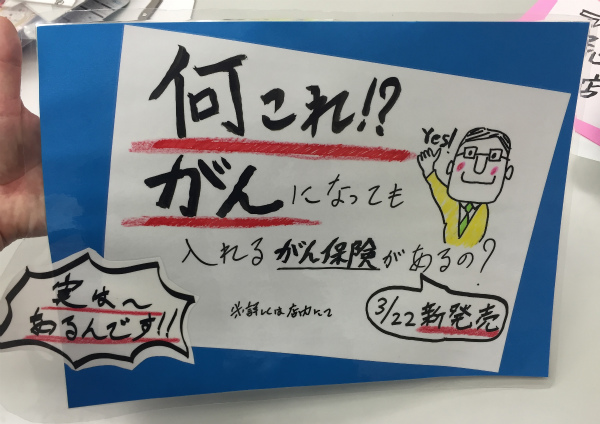 何これ!?
がんになっても
Yes!
入れるがん保険があるの?
3/22新発売
※詳しくは店内にて
実は～
あるんです!!